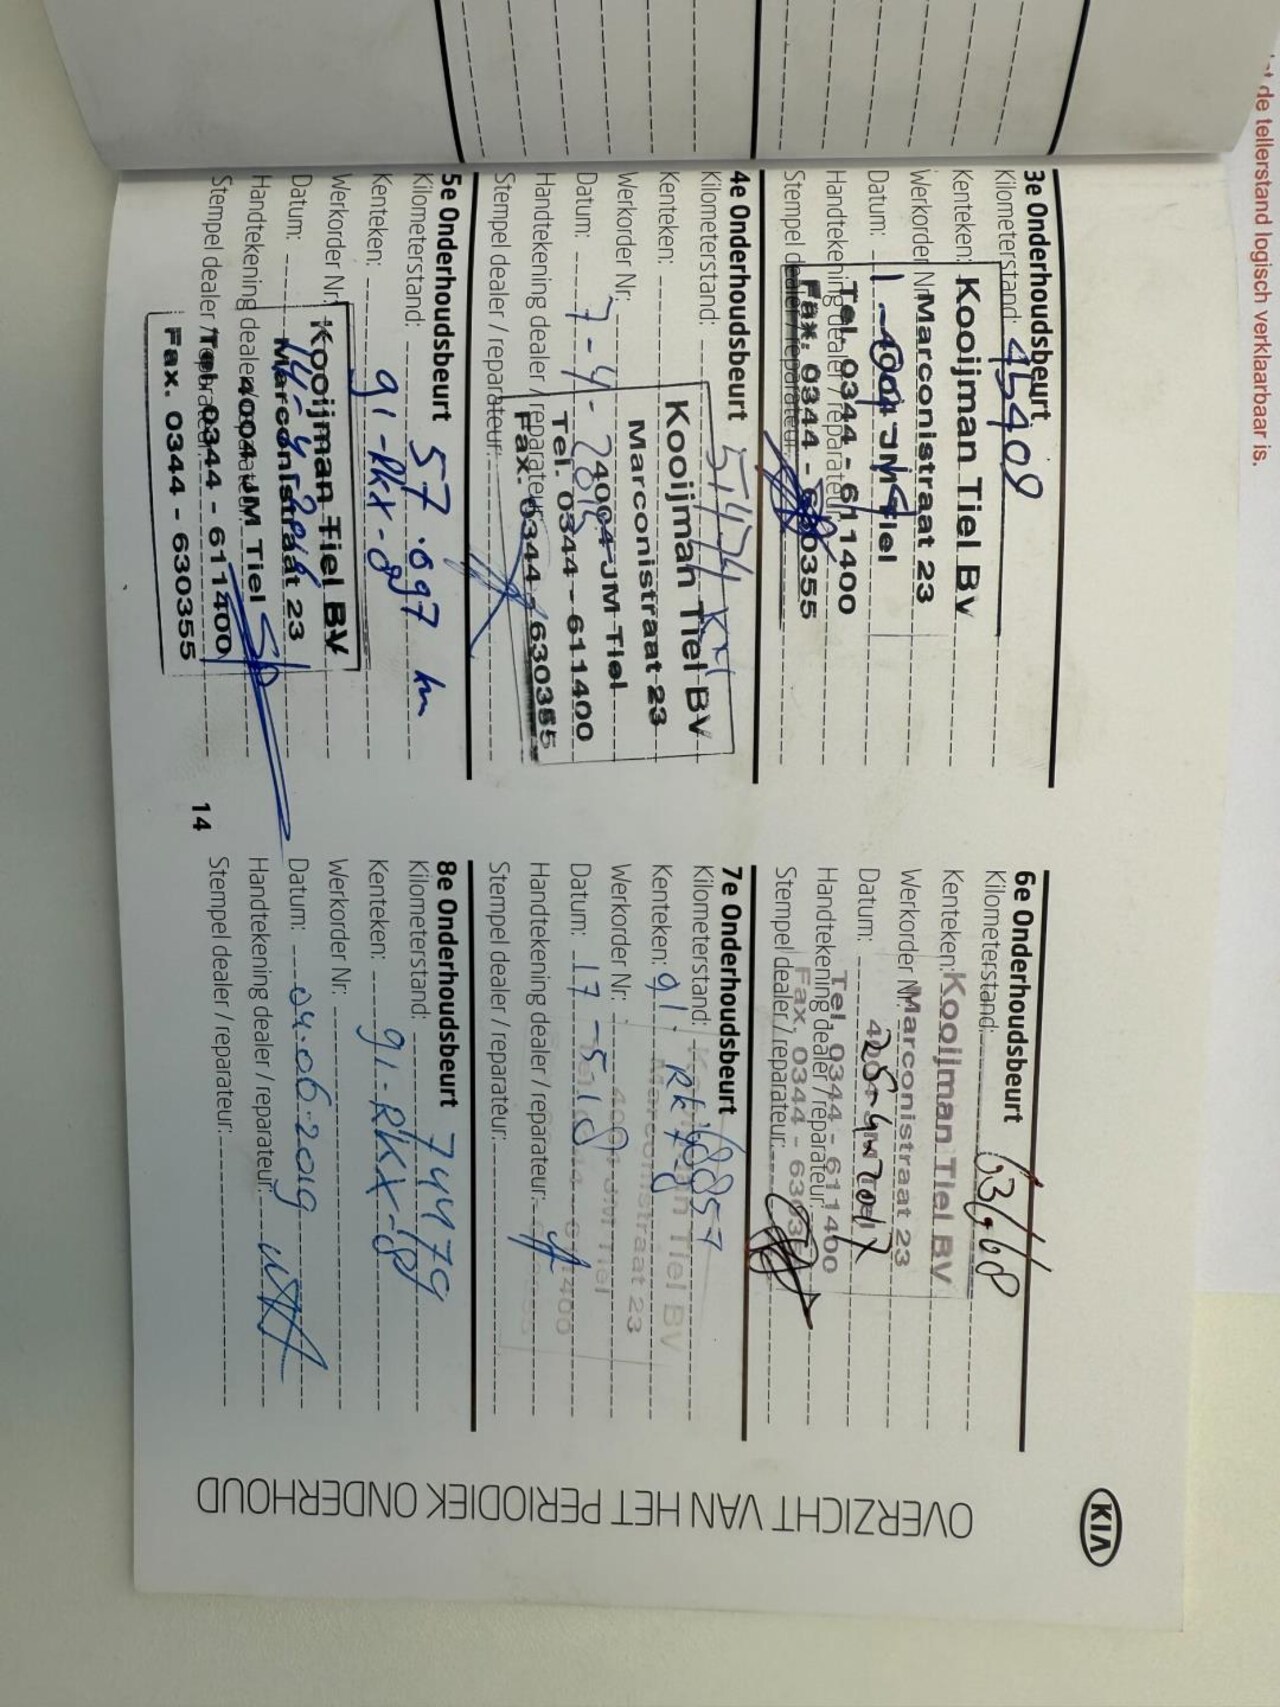 de tellerstand logisch verklaarbaar is.
KIA
OVERZICHT VAN HET PERIODIEK ONDERHOUD
3e Onderhoudsbeurt
Kilometerstand: 45409
Kenteken:
Kooijman Tiel BV
Werkorder Nr:
Marconistraat 23
Datum:
4004 JM Tiel
Handtekening dealer / reparateur:
Tel. 0344 - 611400
Stempel dealer / reparateur:
Fax. 0344 - 630355
4e Onderhoudsbeurt
Kilometerstand: 51474 km
Kenteken:
Kooijman Tiel BV
Werkorder Nr:
Marconistraat 23
Datum: 7-4-2015
4004 JM Tiel
Handtekening dealer / reparateur:
Tel. 0344 - 611400
Stempel dealer / reparateur:
Fax. 0344 - 630355
5e Onderhoudsbeurt
Kilometerstand: 57.697 km
Kenteken: 91-RKX-8
Werkorder Nr:
Kooijman Tiel BV
Datum: 14-4-2016
Marconistraat 23
Handtekening dealer / reparateur:
4004 JM Tiel
Stempel dealer / reparateur:
Tel. 0344 - 611400
Fax. 0344 - 630355
14
6e Onderhoudsbeurt
Kilometerstand: 63668
Kenteken:
Kooijman Tiel BV
Werkorder Nr:
Marconistraat 23
Datum: 25-4-2017
4004 JM Tiel
Handtekening dealer / reparateur:
Tel. 0344 - 611400
Stempel dealer / reparateur:
Fax. 0344 - 630355
7e Onderhoudsbeurt
Kilometerstand: 68857
Kooijman Tiel BV
Kenteken: 91-RKX-8
Marconistraat 23
Werkorder Nr:
4004 JM Tiel
Datum: 17-5-18
Handtekening dealer / reparateur:
Stempel dealer / reparateur:
8e Onderhoudsbeurt
Kilometerstand: 74479
Kenteken: 91-RKX-8
Werkorder Nr:
Datum: 04.06.2019
Handtekening dealer / reparateur:
Stempel dealer / reparateur: